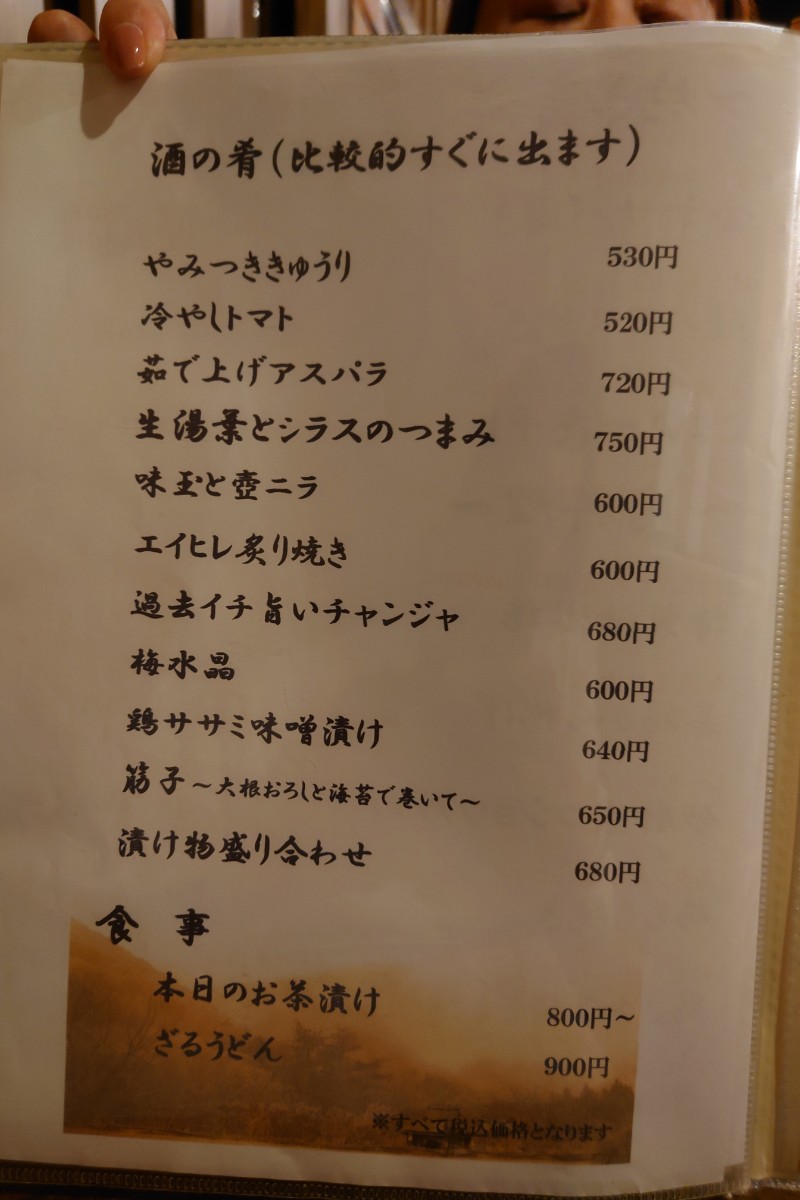 酒の肴(比較的すぐに出ます)
やみつききゅうり 530円
冷やしトマト 520円
茹で上げアスパラ 720円
生湯葉とシラスのつまみ 750円
味玉と壺ニラ 600円
エイヒレ炙り焼き 600円
過去イチ旨いチャンジャ 680円
梅水晶 600円
鶏ササミ味噌漬け 640円
筋子～大根おろしと海苔で巻いて～ 650円
漬け物盛り合わせ 680円
食 事
本日のお茶漬け 800円～
ざるうどん 900円
※すべて税込価格となります